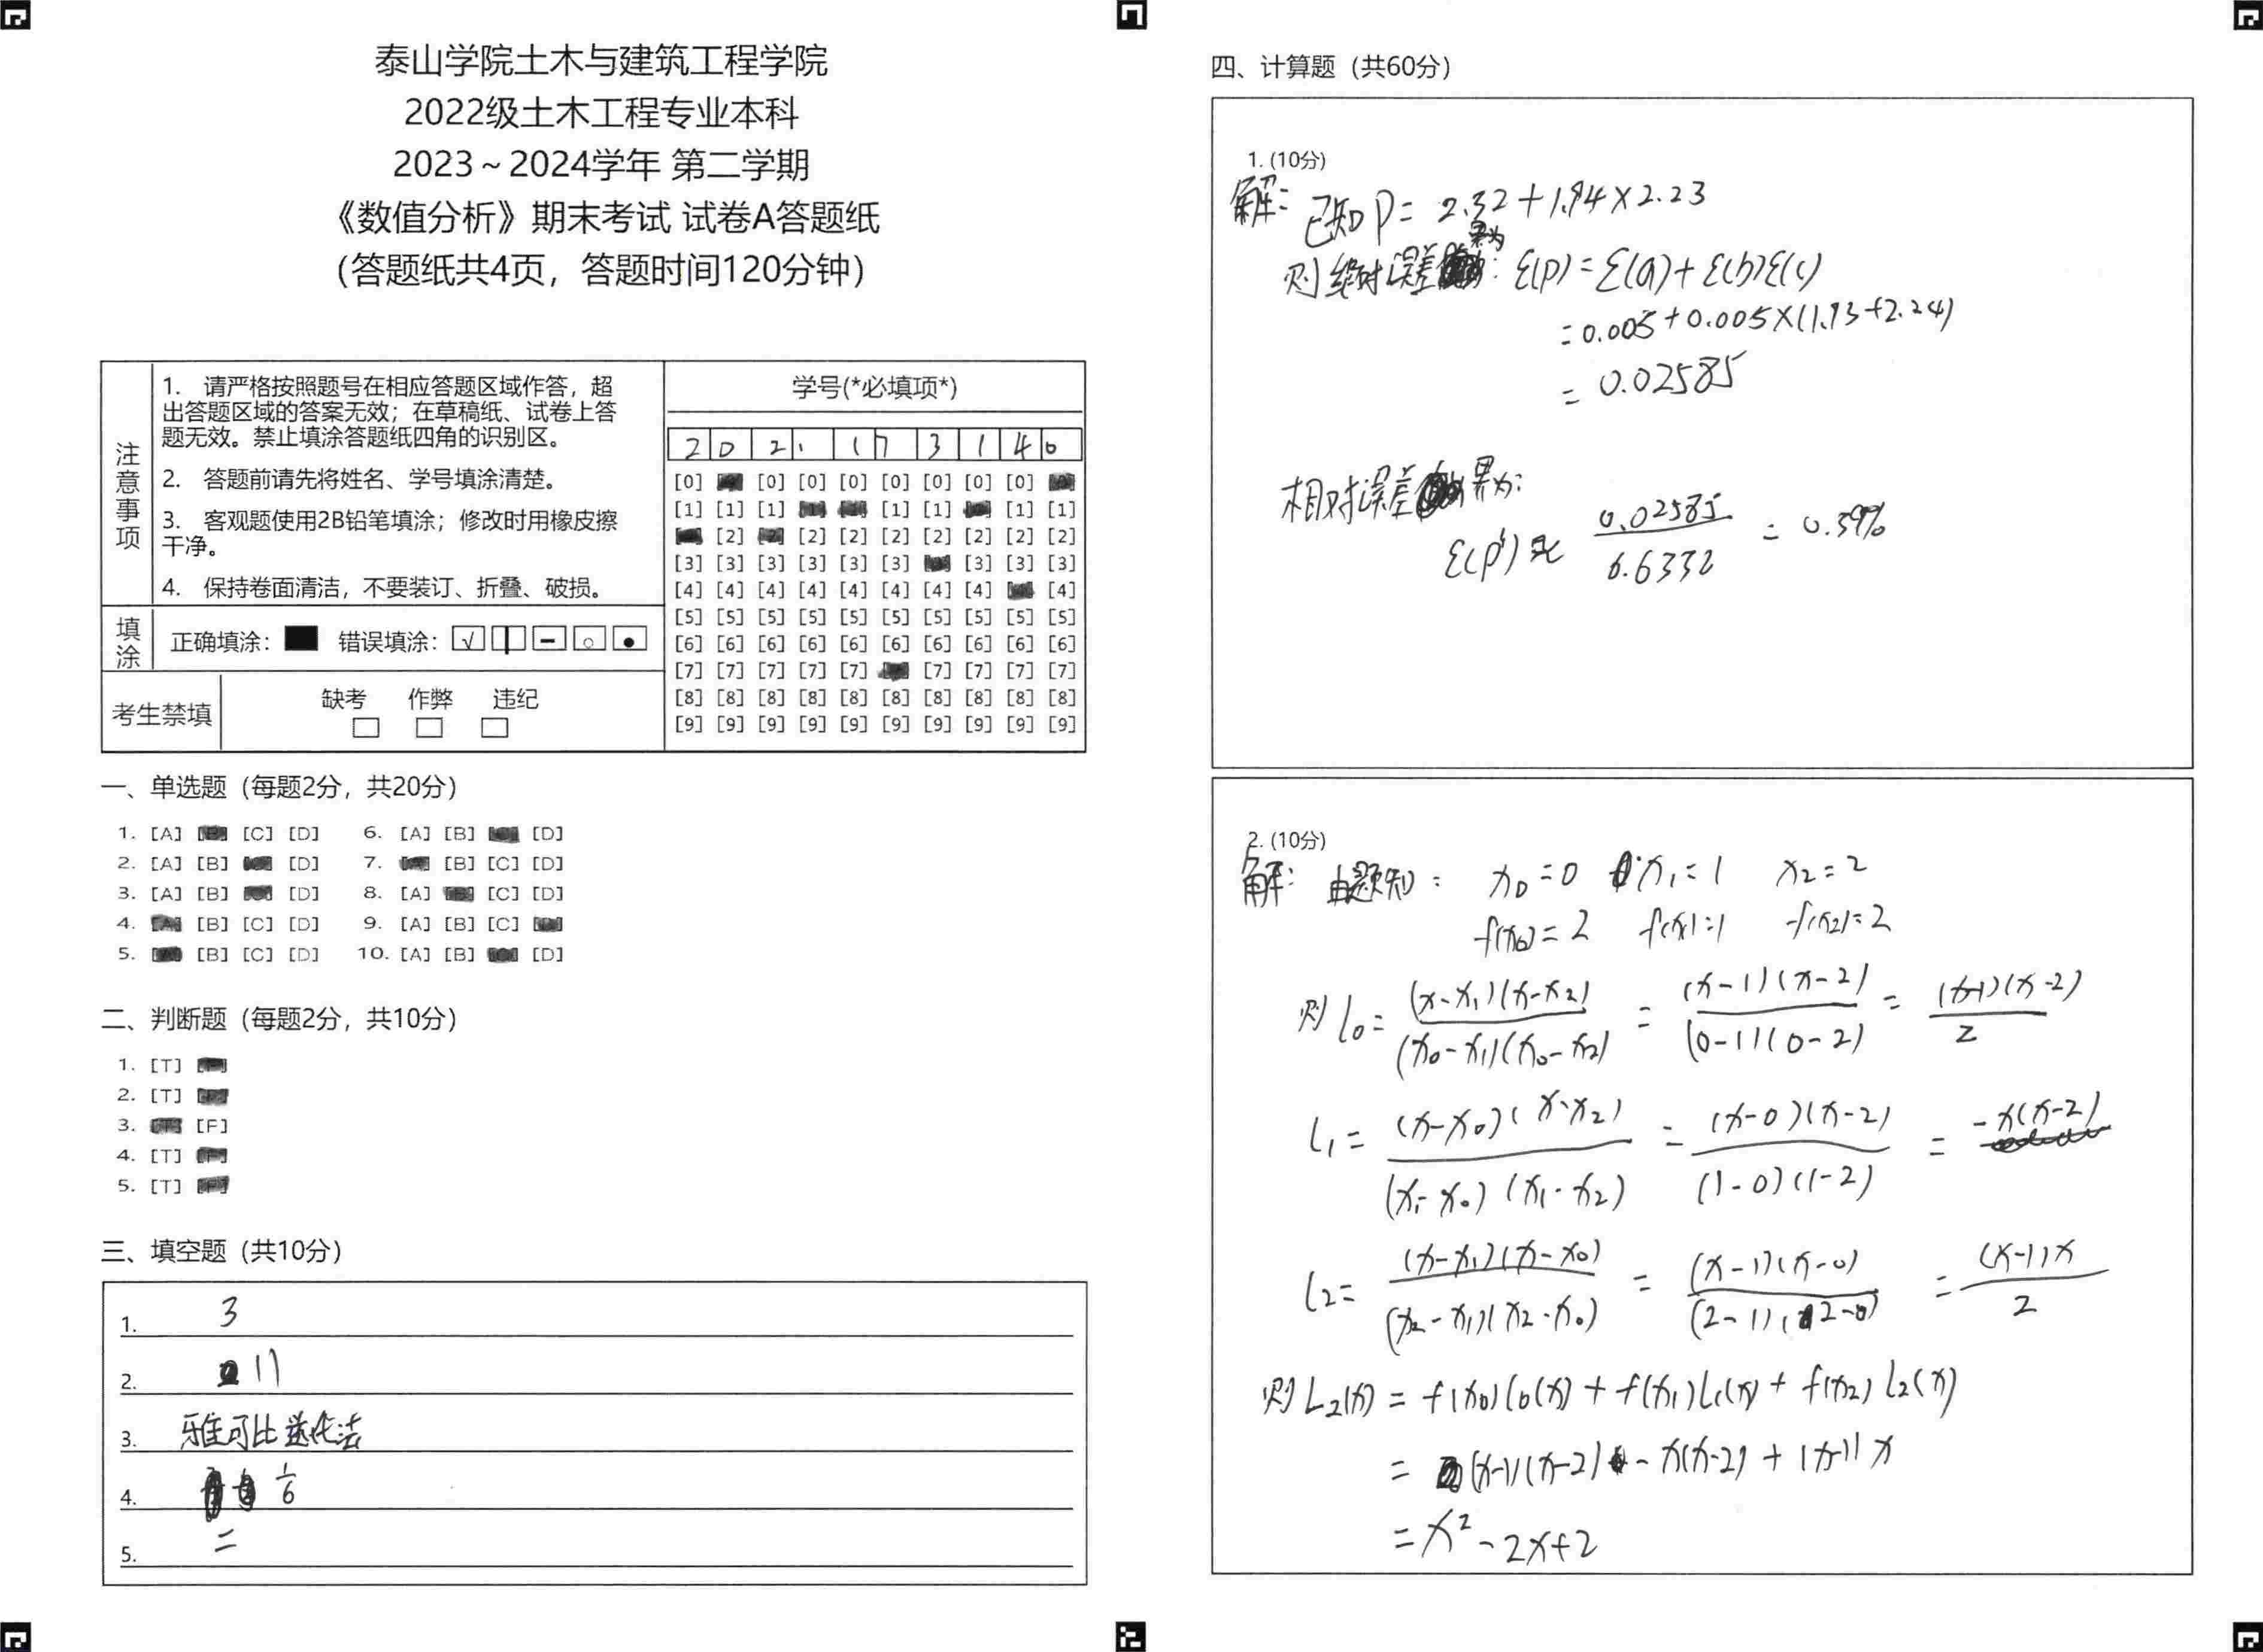 泰山学院土木与建筑工程学院
2022级土木工程专业本科
2023～2024学年 第二学期
《数值分析》期末考试 试卷A答题纸
（答题纸共4页，答题时间120分钟）
注意事项
1. 请严格按照题号在相应答题区域作答，超
出答题区域的答案无效；在草稿纸、试卷上答
题无效。禁止填涂答题纸四角的识别区。
2. 答题前请先将姓名、学号填涂清楚。
3. 客观题使用2B铅笔填涂；修改时用橡皮擦
干净。
4. 保持卷面清洁，不要装订、折叠、破损。
填涂 正确填涂： 错误填涂： √
考生禁填 缺考 作弊 违纪
学号(*必填项*)
2 0 2 1 1 7 3 1 4 0
[0] [0] [0] [0] [0] [0] [0] [0]
[1] [1] [1] [1] [1] [1] [1]
[2] [2] [2] [2] [2] [2] [2] [2]
[3] [3] [3] [3] [3] [3] [3] [3] [3]
[4] [4] [4] [4] [4] [4] [4] [4] [4]
[5] [5] [5] [5] [5] [5] [5] [5] [5] [5]
[6] [6] [6] [6] [6] [6] [6] [6] [6] [6]
[7] [7] [7] [7] [7] [7] [7] [7] [7]
[8] [8] [8] [8] [8] [8] [8] [8] [8] [8]
[9] [9] [9] [9] [9] [9] [9] [9] [9] [9]
一、单选题（每题2分，共20分）
1. [A] [B] [C] [D] 6. [A] [B] [C] [D]
2. [A] [B] [C] [D] 7. [A] [B] [C] [D]
3. [A] [B] [C] [D] 8. [A] [B] [C] [D]
4. [A] [B] [C] [D] 9. [A] [B] [C] [D]
5. [A] [B] [C] [D] 10. [A] [B] [C] [D]
二、判断题（每题2分，共10分）
1. [T] [F]
2. [T] [F]
3. [T] [F]
4. [T] [F]
5. [T] [F]
三、填空题（共10分）
1. 3
2. 11
3. 雅可比迭代法
4. 1/6
5. 二
四、计算题（共60分）
1. (10分)
解：已知 P = 2.32 + 1.94 × 2.23
则绝对误差界为：ε(p) = ε(a) + ε(b)ε(c)
= 0.005 + 0.005×(1.93+2.24)
= 0.02585
相对误差界为：
ε(p) ≈ 0.02585/6.6332 = 0.39%
2. (10分)
解：由题知： x₀=0 x₁=1 x₂=2
f(x₀)=2 f(x₁)=1 f(x₂)=2
则 l₀ = (x-x₁)(x-x₂)/(x₀-x₁)(x₀-x₂) = (x-1)(x-2)/(0-1)(0-2) = (x-1)(x-2)/2
l₁ = (x-x₀)(x-x₂)/(x₁-x₀)(x₁-x₂) = (x-0)(x-2)/(1-0)(1-2) = -x(x-2)
l₂ = (x-x₁)(x-x₀)/(x₂-x₁)(x₂-x₀) = (x-1)(x-0)/(2-1)(2-0) = (x-1)x/2
则 L₂(x) = f(x₀)l₀(x) + f(x₁)l₁(x) + f(x₂)l₂(x)
= (x-1)(x-2) - x(x-2) + (x-1)x
= x² - 2x + 2